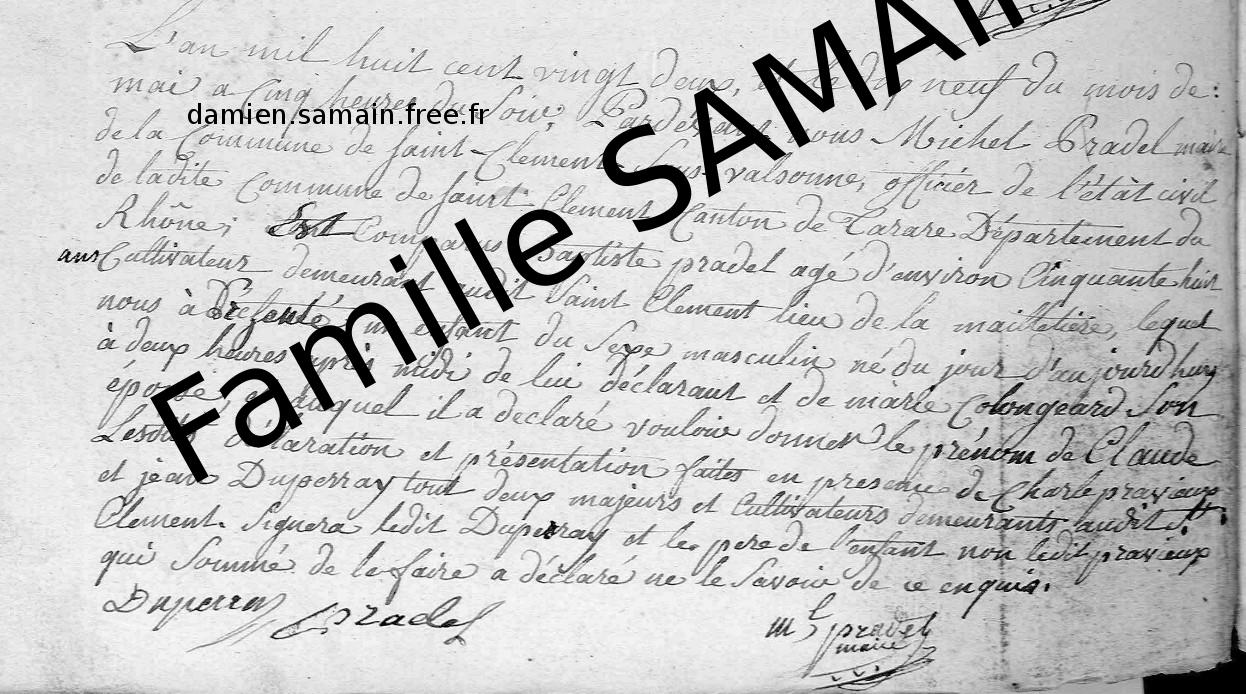 L'an mil huit cent vingt deux, et le dix neuf du mois de :
mai a Cinq heures du Soir, Pardevant nous Michel Pradel maire
de la Commune de Saint-Clement Sous valsonne, officier de l'état civil
de ladite Commune de Saint Clement Canton de Tarare Département du
Rhône; Est Comparus Baptiste pradel agé d'environ Cinquante huit
ans Cultivateur demeurant audit Saint Clement lieu de la lequel
nous à Présenté un enfant du Sexe masculin né du jour d'aujourdhuy
à deux heures après midi de lui déclarant et de marie Colongeard Son
épouse et auquel il a declaré vouloir donner le prénom de Claude
Lesdits déclaration et présentation faites en presence de Charle pravieux
et jean Duperray tout deux majeurs et Cultivateurs demeurants audit St
Clement. Signera ledit Duperray et le pere de l'enfant non ledit pravieux
qui Sommé de le faire a déclaré ne le Savoir de ce enquis.
Duperray Pradel
m pradel
maire
damien.samain.free.fr
Famille SAMAIN